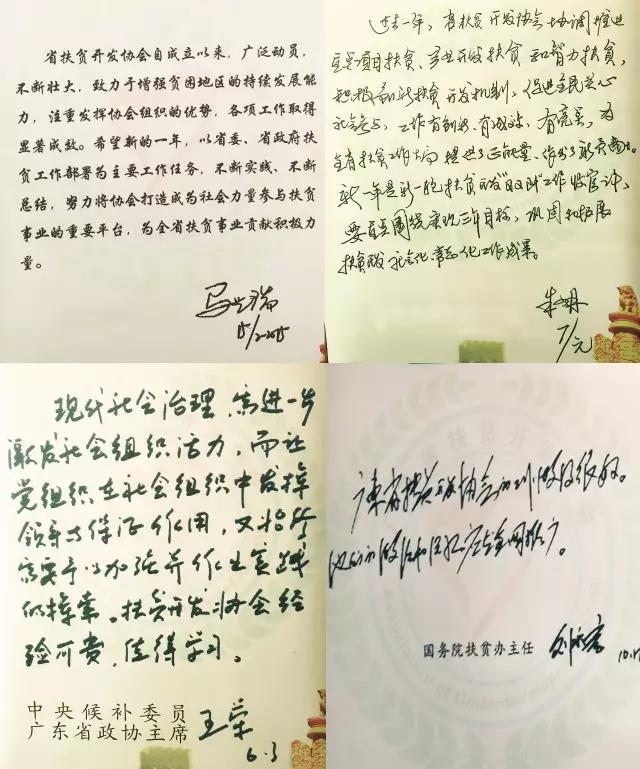 省扶贫开发协会自成立以来，广泛动员，
不断壮大，致力于增强贫困地区的持续发展能
力，注重发挥协会组织的优势，各项工作取得
显著成效。希望新的一年，以省委、省政府扶
贫工作部署为主要工作任务，不断实践、不断
总结，努力将协会打造成为社会力量参与扶贫
事业的重要平台，为全省扶贫事业贡献积极力
量。
15/2-2015
过去一年，省扶贫开发协会协调推进
项目扶贫、产业开发扶贫和智力扶贫，
积极创新扶贫开发机制，促进
工作有创新、有成效、有亮点，为
全省扶贫工作提供了正能量、作出了
新一年是新一轮扶贫开发“双到”工作收官之年，
要围绕实现三年目标，巩固和拓展
扶贫开发社会化常态化工作成果。
7/元
现代社会治理，需进一步
激发社会组织活力，而让
党组织在社会组织中发挥
领导与保证作用，又恰恰
需要予以加强并作出实践
的探索。扶贫开发协会经
验可贵，值得学习。
中央候补委员
广东省政协主席 王荣
6.3
广东省扶贫开发协会的工作做得很好。
他们的做法和经验应在全国推广。
国务院扶贫办主任 刘永富